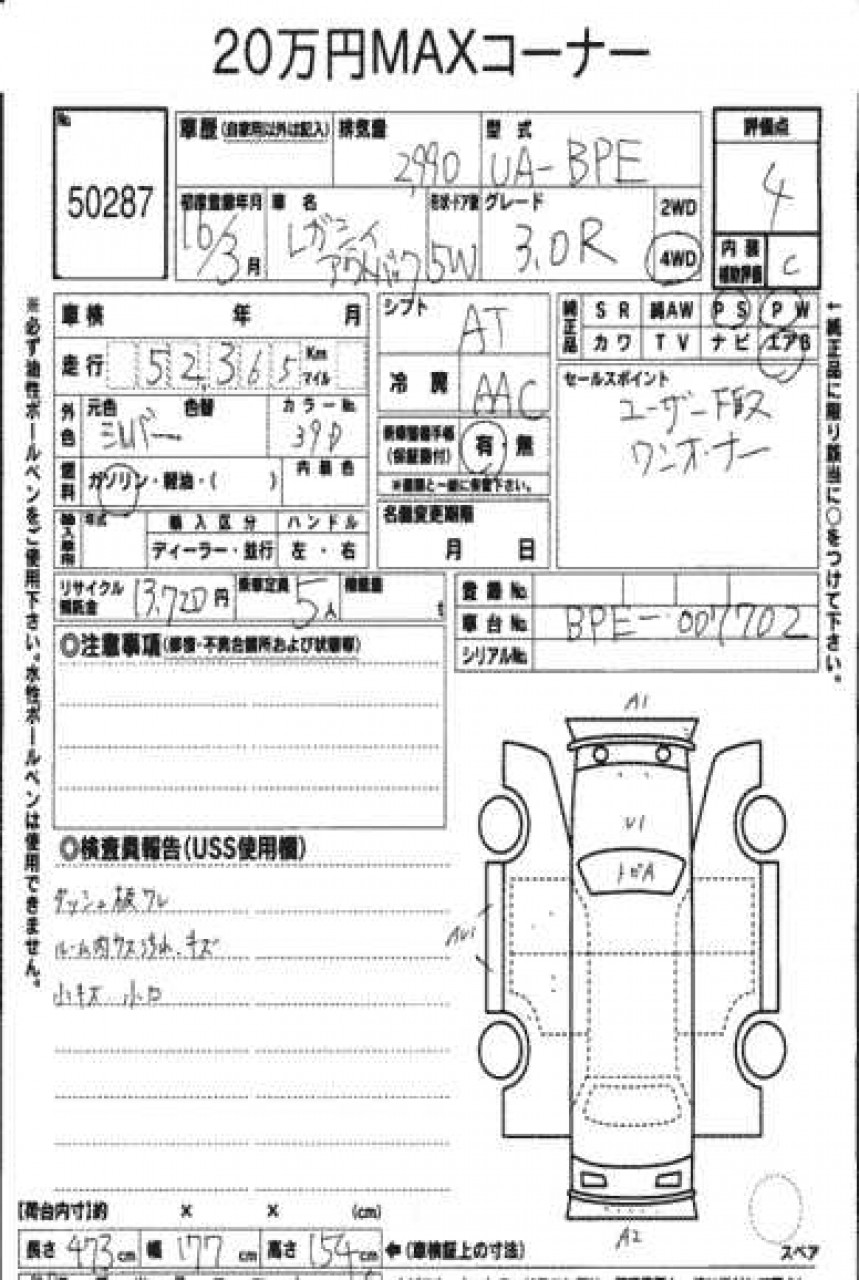 20万円MAXコーナー
No.
50287
車歴(自家用以外は記入)
排気量
2,990
型式
UA-BPE
評価点
4
初度登録年月
16/3月
車名
レガシィ
アウトバック
形状・ドア数
5W
グレード
3.0R
2WD
4WD
内装
補助評価
C
車検 年 月
シフト
AT
純正品
SR 純AW PS PW
カワ TV ナビ エアB
走行 52,365 Km
マイル
冷房
AAC
セールスポイント
ユーザー下取ス
ワンオーナー
外色
元色 色替
シルバー
カラーNo.
39D
(保証書付)
有・無
燃料
ガソリン・軽油・( )
内装色
※書類と一緒に保管下さい。
年式
輸入区分
ハンドル
ディーラー・並行
左・右
名義変更期限
月 日
リサイクル
預託金
13,720円
乗車定員
5人
積載量
t
登録No.
車台No.
BPE-007702
シリアルNo.
◎注意事項(修復・不具合箇所および状態等)
◎検査員報告(USS使用欄)
ダッシュ板ワレ
ルーム内ウス汚れ、キズ
小キズ 小凹
A1
U1
トビA
AU1
A2
スペア
【荷台内寸】約 × × (cm)
長さ 473cm 幅 177cm 高さ 154cm ←(車検証上の寸法)
※必ず油性ボールペンをご使用下さい。水性ボールペンは使用できません。
←純正品に限り該当に○をつけて下さい。